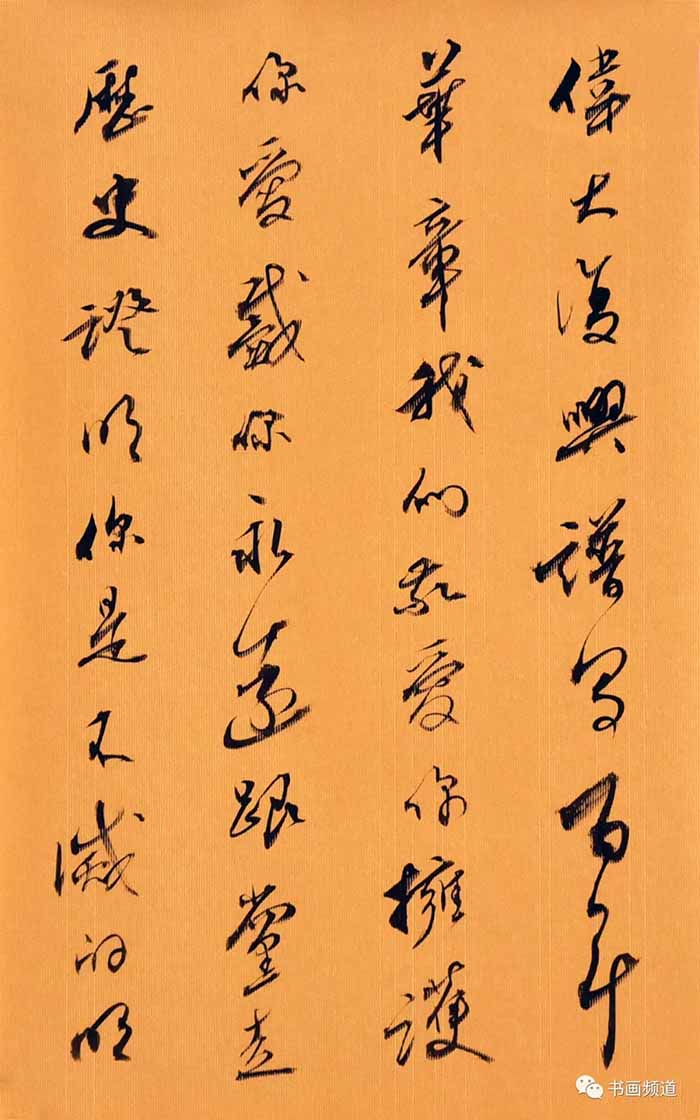 偉大復興譜写百年
華章我們敬愛你擁護
你愛戴你永遠跟黨走
歷史證明你是不滅的明
书画频道